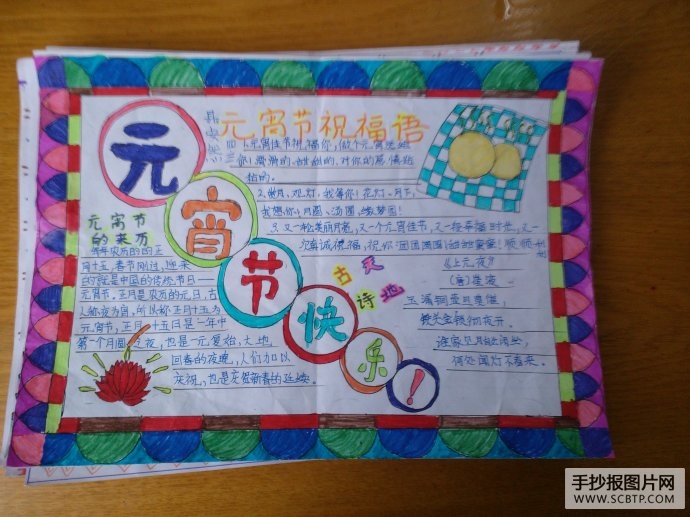 元宵节快乐!
元宵节祝福语
1.元宵佳节祝福你,做个元宵送给
你!滑滑的、甜甜的,对你的感情粘
粘的。
我想你!月圆、汤圆、缘梦圆!
3.又一轮美丽月亮,又一个元宵佳节,又一段幸福时光,又一
元宵节
的来历
每年农历的的正
月十五,春节刚过,迎来
的就是中国的传统节日——
元宵节,正月是农历的元日,古
人称夜为宵,所以称正月十五为
元宵节,正月十五日是一年中
第一个月圆之夜,也是一元复始,大地
回春的夜晚,人们加以
庆祝,也是庆贺新春的延续。
古诗
天地
《上元夜》
(唐)崔液
玉漏铜壶且莫催,
铁关金锁彻夜开。
谁家见月能闲坐,
何处闻灯不看来。
手抄报图片网
WWW.SCBTP.COM